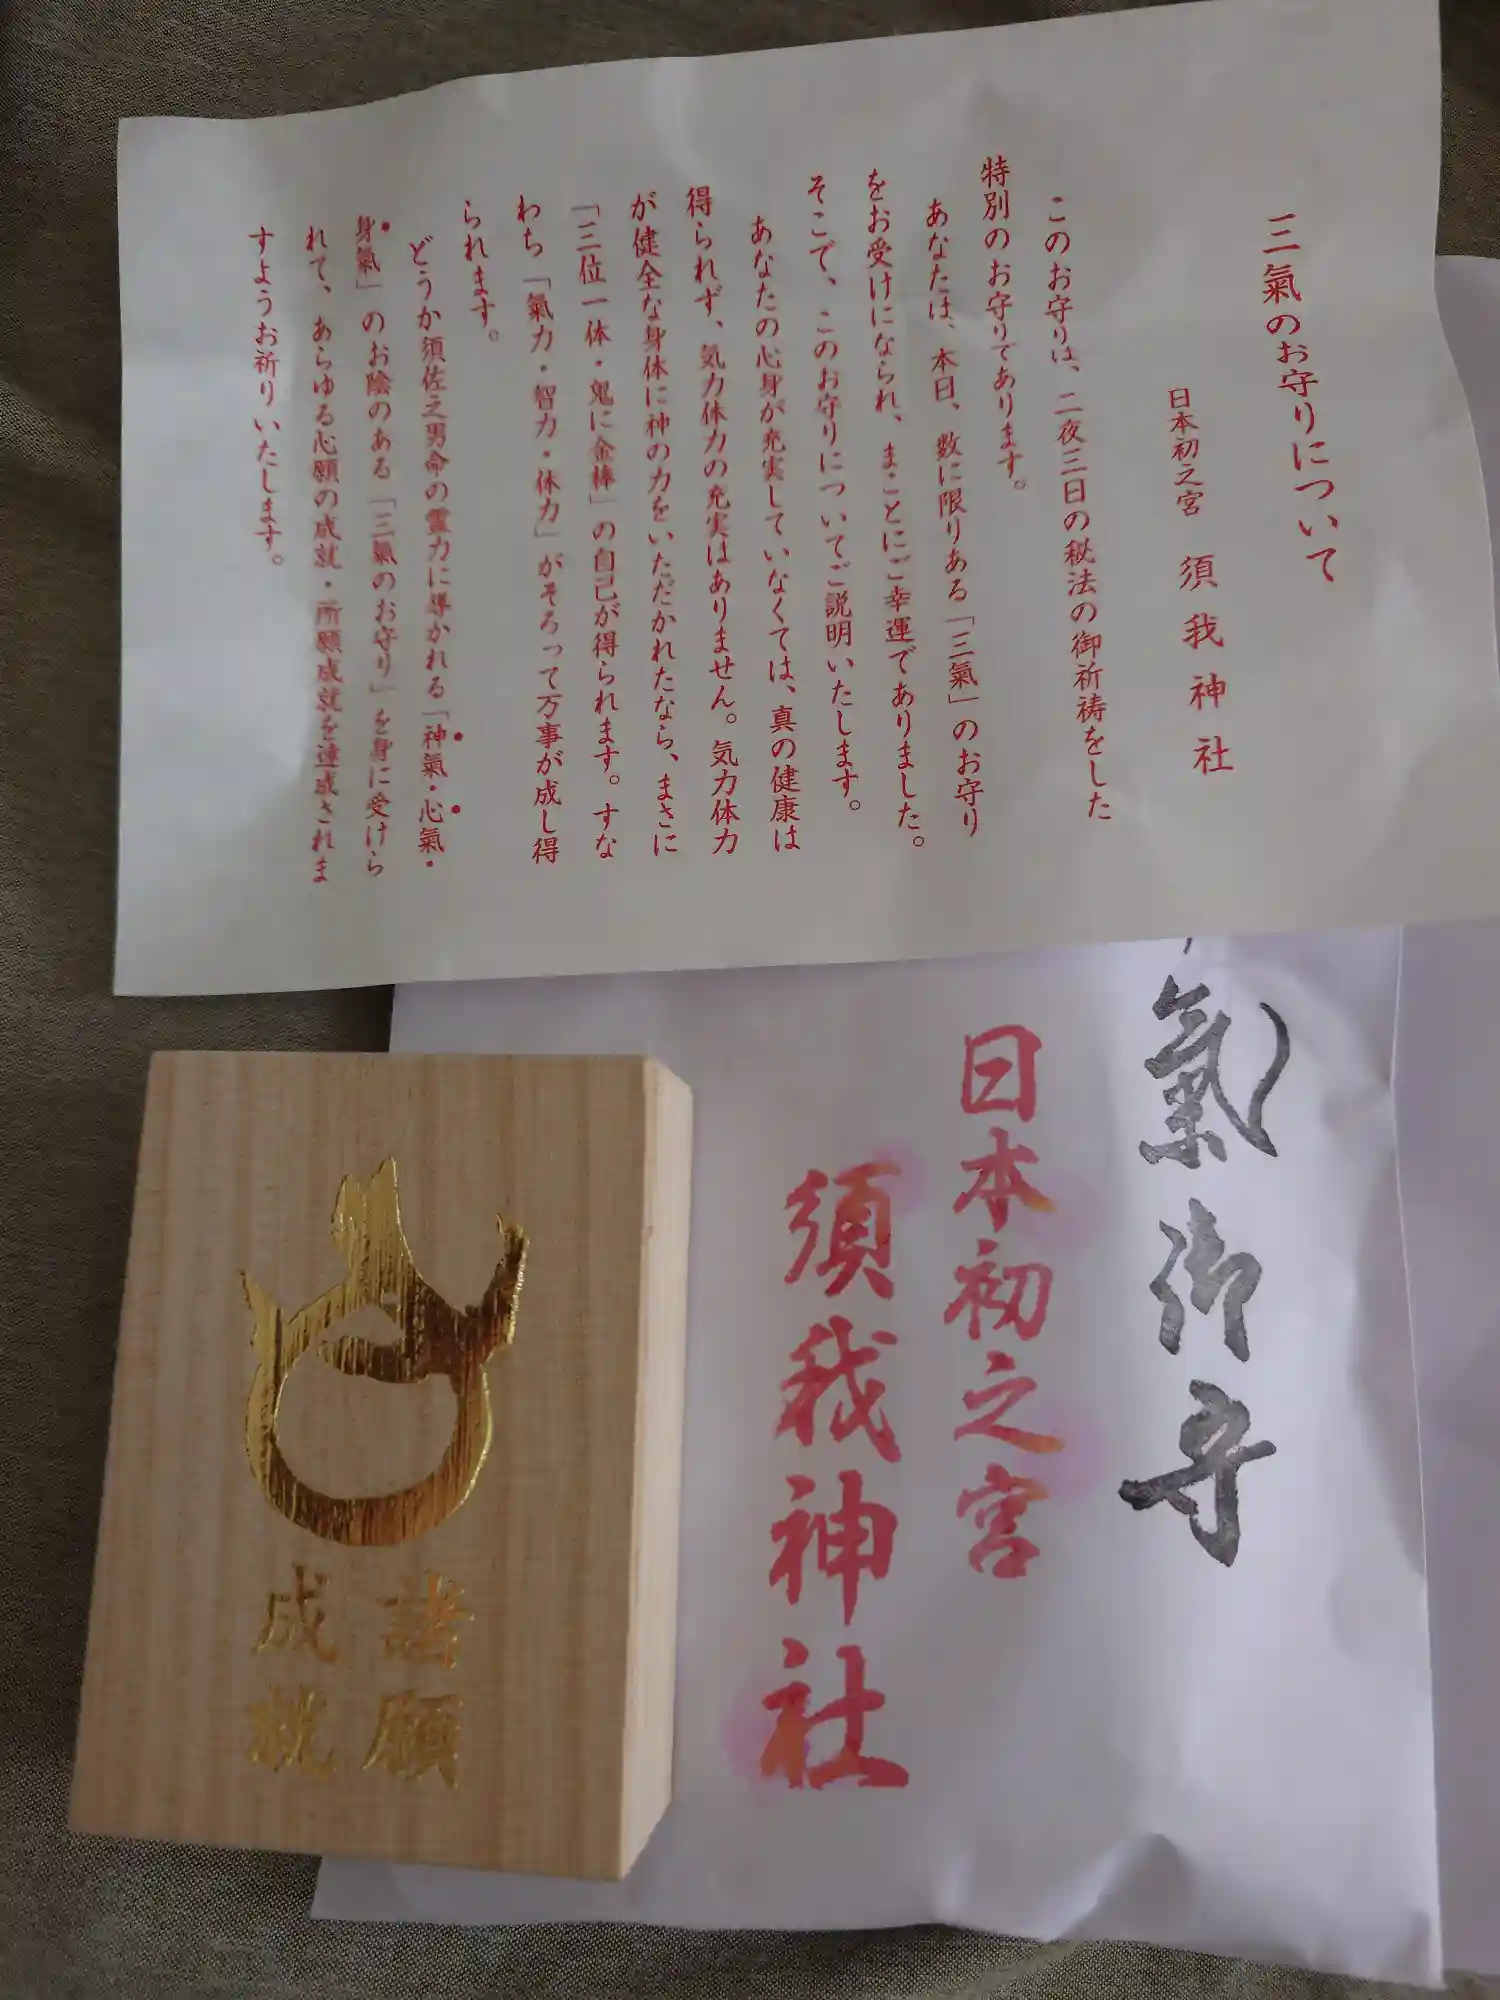 三氣のお守りについて
日本初之宮 須我神社
このお守りは、二夜三日の秘法の御祈祷をした
特別のお守りであります。
あなたは、本日、数に限りある「三氣」のお守り
をお受けになられ、まことにご幸運でありました。
そこで、このお守りについてご説明いたします。
あなたの心身が充実していなくては、真の健康は
得られず、気力体力の充実はありません。気力体力
が健全な身体に神の力をいただかれたなら、まさに
「三位一体・鬼に金棒」の自己が得られます。すな
わち「氣力・智力・体力」がそろって万事が成し得
られます。
どうか須佐之男命の霊力に導かれる「神氣・心氣・
身氣」のお陰のある「三氣のお守り」を身に受けら
れて、あらゆる心願の成就・所願成就を達成されま
すようお祈りいたします。
氣御守
日本初之宮
須我神社
諸願
成就